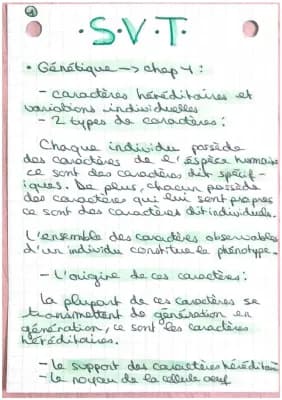 1
• S • V • T •
• Génétique —> chap 4 :
- caractères héréditaires et
variations individuelles
- 2 types de caractères :
Chaque individu possède
des caractères de l'éspèce humaine
ce sont des caractères dit spécif-
iques. De plus, chacun possède
des caractères qui lui sont propres
ce sont des caractères dit individuels.
L'ensemble des caractères observables
d'un individu constitue le phénotype.
- L'origine de ces caractères :
La plupart de ces caractères se
transmettent de génération en
génération, ce sont les caractères
héréditaires.
- le support des caractères héréditair
- le noyau de la cellule oeuf